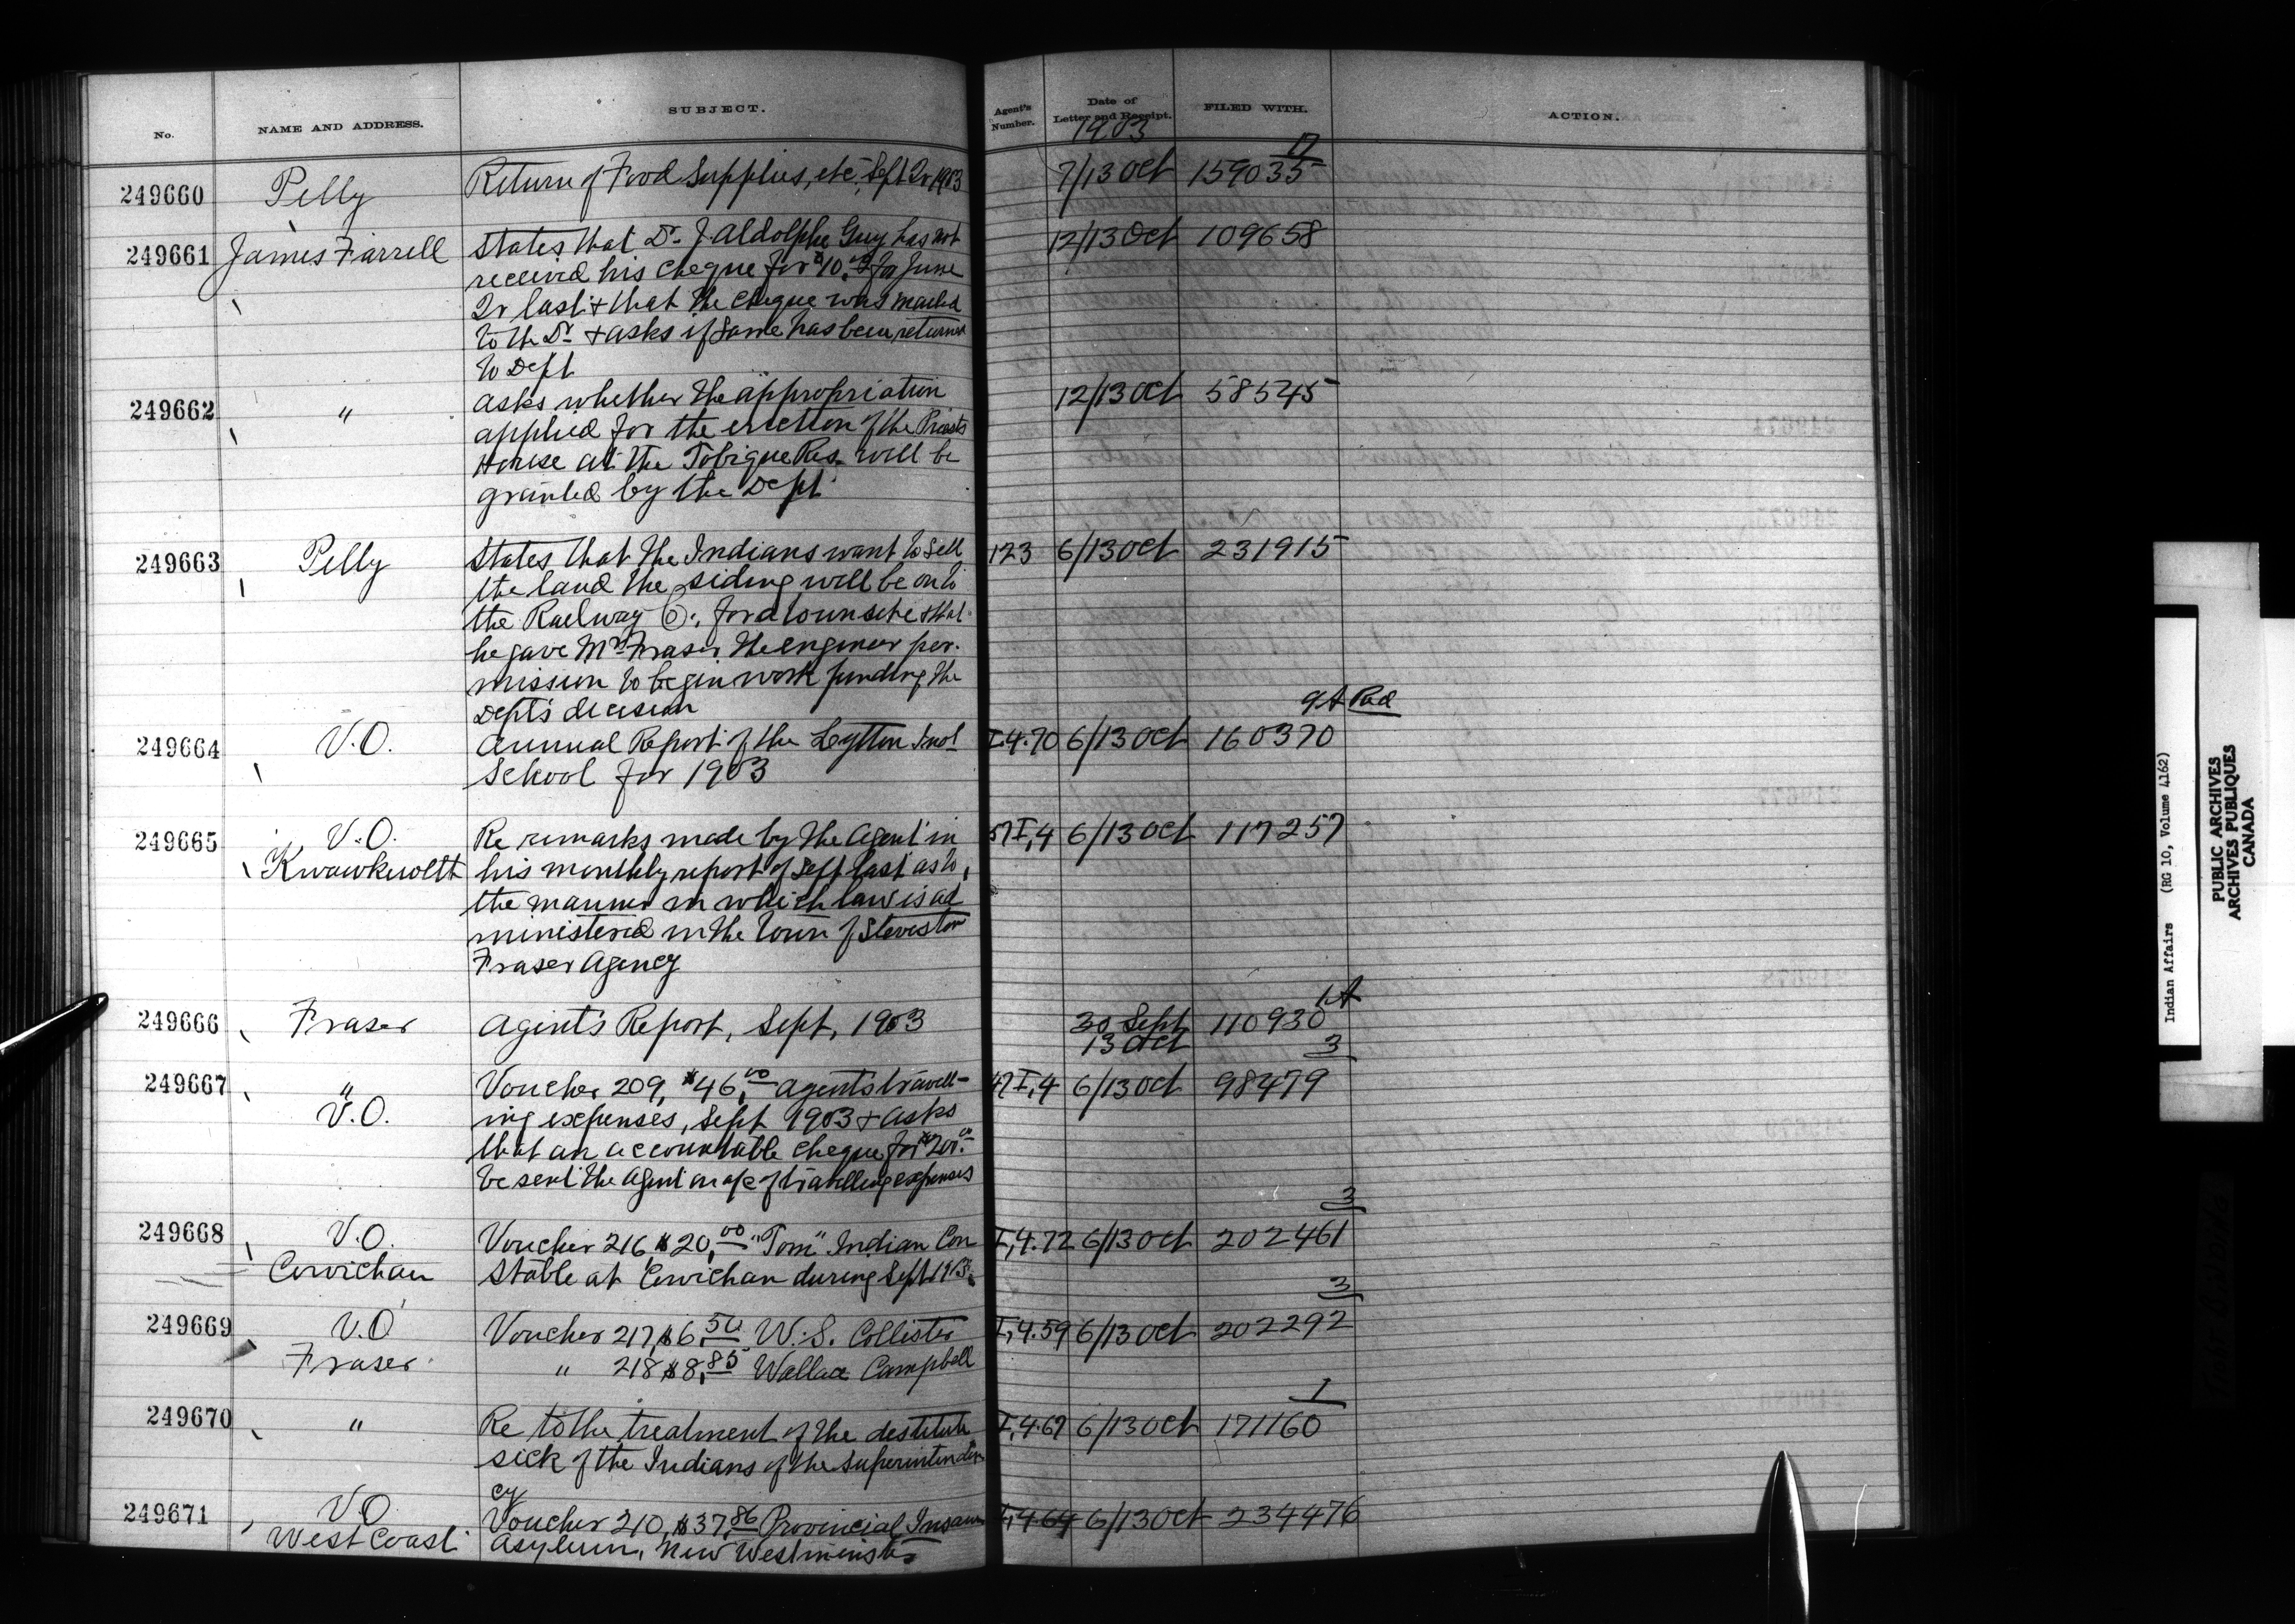 No. NAME AND ADDRESS. SUBJECT. Agent's Number. Date of Letter and Receipt. FILED WITH. ACTION.
1903
249660 Pelly Return of Food Supplies, etc, Sept Qr 1903 7/13 Oct 159035
249661 James Farrell States that Dr J. Aldolphe Guy has not 12/13 Oct 109658
received his cheque for $10.00 for June
Qr last & that the cheque was mailed
to the Dr & asks if same has been returned
to Dept
249662 " asks whether the appropriation 12/13 Oct 58545
applied for the erection of the Priests
House at the Tobique Res. will be
granted by the Dept
249663 Pelly States that the Indians want to sell 123 6/13 Oct 231915
the land the siding will be on to
the Railway Co., for a townsite & that
he gave Mr Fraser the engineer per-
mission to begin work pending the
Dept's decision
9A Pad
249664 V.O. Annual Report of the Lytton Indl I,4.70 6/13 Oct 160370
School for 1903
249665 V.O. Re remarks made by the Agent in 57 I,4 6/13 Oct 117257
Kwawkewlth his monthly report of Sept last as to
the manner in which law is ad
ministered in the town of Steveston
Fraser Agency
1A
249666 Fraser Agent's Report, Sept, 1903 30 Sept 110930
13 Oct
3
249667 " Voucher 209, $46,00 agents travell- 47 I,4 6/13 Oct 98479
V.O. ing expenses, Sept 1903 & asks
that an accountable cheque for $200.00
be sent the Agent on a/c of travelling expenses
3
249668 V.O. Voucher 216 $20,00 "Tom" Indian Con I,4.72 6/13 Oct 202461
Cowichan stable at Cowichan during Sept 1903.
3
249669 V.O Voucher 217, $6,50 W. S. Collister I,4.59 6/13 Oct 202292
Fraser " 218 $8,85 Wallace Campbell
1
249670 " Re to the treatment of the destitute I,4.67 6/13 Oct 171160
sick of the Indians of the Superintenden
cy
249671 V.O. Voucher 210, $37,86 Provincial Insane I,4.64 6/13 Oct 234476
West Coast Asylum, New Westminster
Indian Affairs (RG 10, Volume 4162)
PUBLIC ARCHIVES
ARCHIVES PUBLIQUES
CANADA